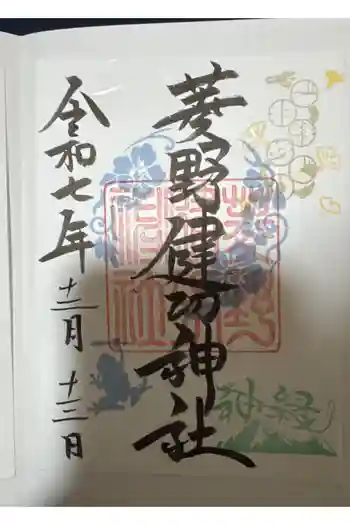 菱野健功神社
令和七年
十二月
十三日
神経